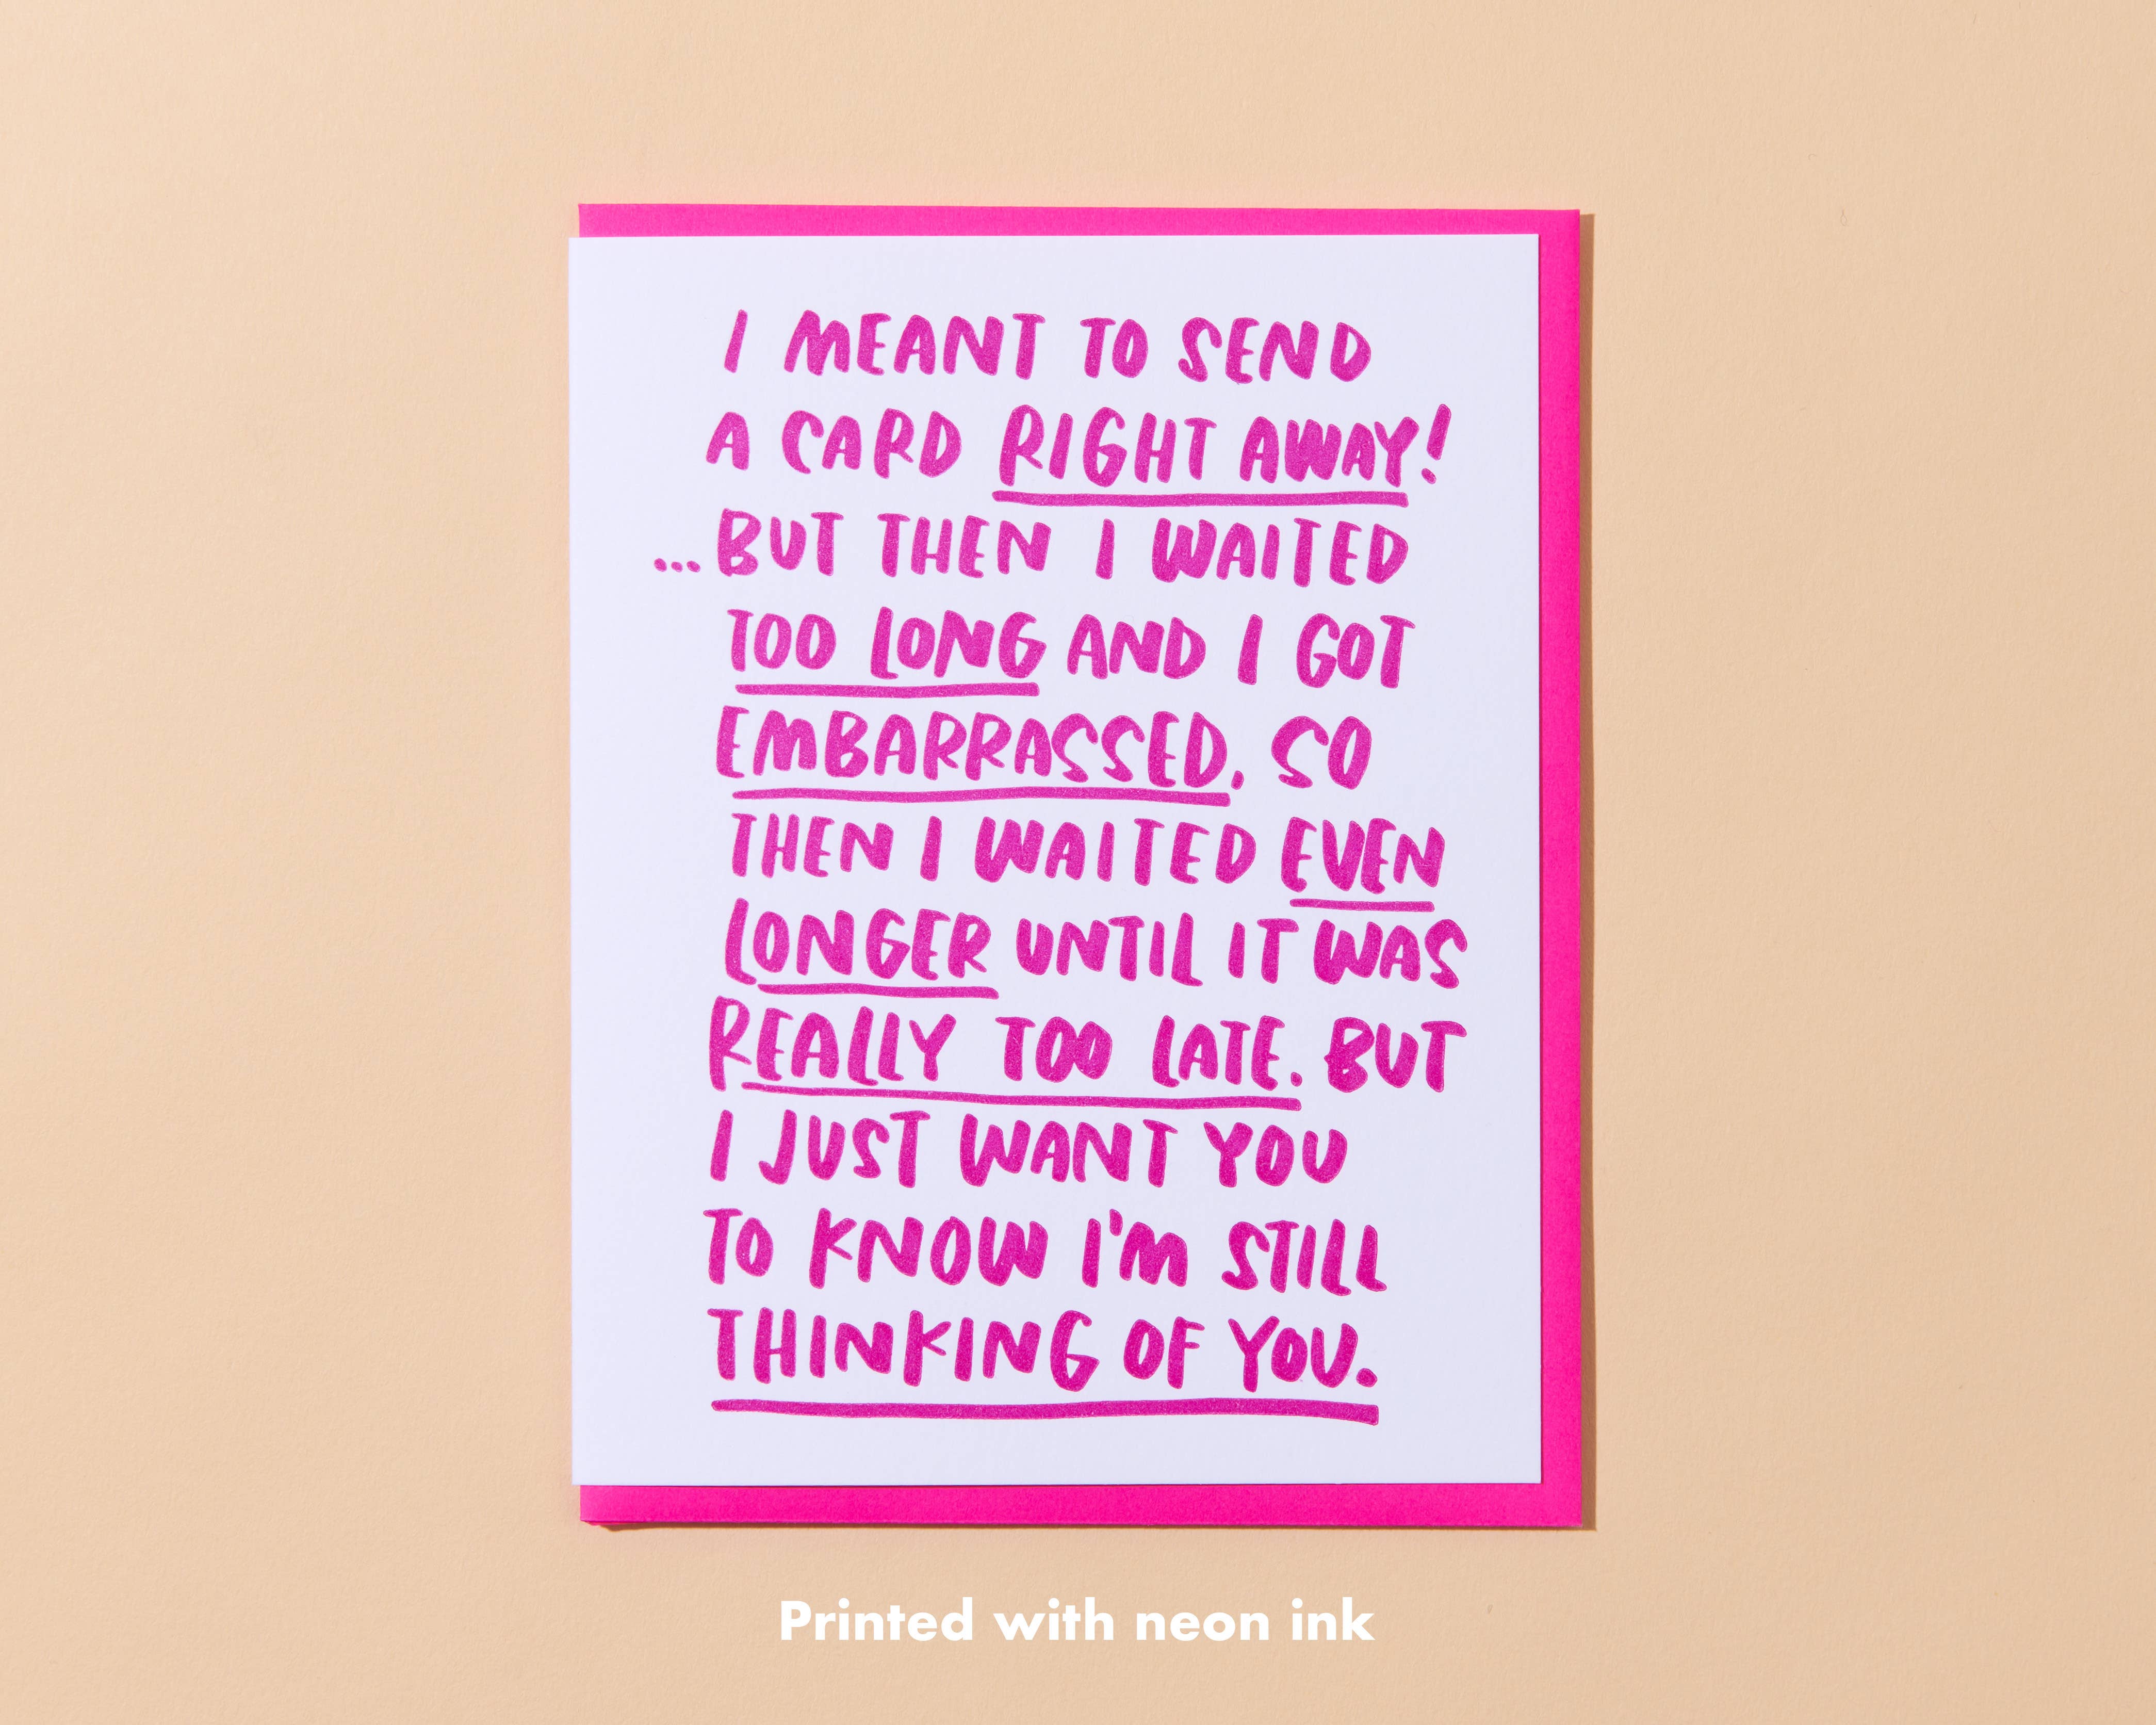 I MEANT TO SEND
A CARD RIGHT AWAY!
...BUT THEN I WAITED
TOO LONG AND I GOT
EMBARRASSED. SO
THEN I WAITED EVEN
LONGER UNTIL IT WAS
REALLY TOO LATE. BUT
I JUST WANT YOU
TO KNOW I'M STILL
THINKING OF YOU.
Printed with neon ink